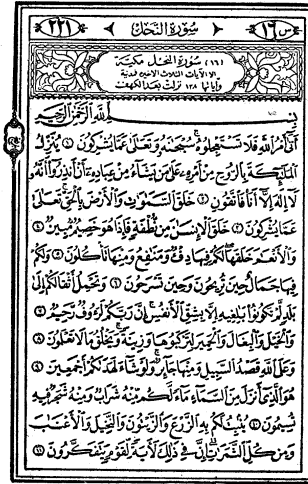 س ١٦ سُورَةُ النَّحْل ٢٢١
(١٦) سُورَةُ النَّحْل مَكِّيَّة
إلا الآيات الثلاث الأخيرة فمدنية
وآياتها ١٢٨ نزلت بعد الكهف
بِسْمِ اللَّهِ الرَّحْمَٰنِ الرَّحِيمِ
أَتَىٰٓ أَمْرُ ٱللَّهِ فَلَا تَسْتَعْجِلُوهُ سُبْحَٰنَهُۥ وَتَعَٰلَىٰ عَمَّا يُشْرِكُونَ ١ يُنَزِّلُ
ٱلْمَلَٰٓئِكَةَ بِٱلرُّوحِ مِنْ أَمْرِهِۦ عَلَىٰ مَن يَشَآءُ مِنْ عِبَادِهِۦٓ أَنْ أَنذِرُوٓا۟ أَنَّهُۥ
لَآ إِلَٰهَ إِلَّآ أَنَا۠ فَٱتَّقُونِ ٢ خَلَقَ ٱلسَّمَٰوَٰتِ وَٱلْأَرْضَ بِٱلْحَقِّ تَعَٰلَىٰ
عَمَّا يُشْرِكُونَ ٣ خَلَقَ ٱلْإِنسَٰنَ مِن نُّطْفَةٍ فَإِذَا هُوَ خَصِيمٌ مُّبِينٌ ٤
وَٱلْأَنْعَٰمَ خَلَقَهَا لَكُمْ فِيهَا دِفْءٌ وَمَنَٰفِعُ وَمِنْهَا تَأْكُلُونَ ٥ وَلَكُمْ
فِيهَا جَمَالٌ حِينَ تُرِيحُونَ وَحِينَ تَسْرَحُونَ ٦ وَتَحْمِلُ أَثْقَالَكُمْ إِلَىٰ
بَلَدٍ لَّمْ تَكُونُوا۟ بَٰلِغِيهِ إِلَّا بِشِقِّ ٱلْأَنفُسِ إِنَّ رَبَّكُمْ لَرَءُوفٌ رَّحِيمٌ ٧
وَٱلْخَيْلَ وَٱلْبِغَالَ وَٱلْحَمِيرَ لِتَرْكَبُوهَا وَزِينَةً وَيَخْلُقُ مَا لَا تَعْلَمُونَ ٨
وَعَلَى ٱللَّهِ قَصْدُ ٱلسَّبِيلِ وَمِنْهَا جَآئِرٌ وَلَوْ شَآءَ لَهَدَىٰكُمْ أَجْمَعِينَ ٩
هُوَ ٱلَّذِىٓ أَنزَلَ مِنَ ٱلسَّمَآءِ مَآءً لَّكُم مِّنْهُ شَرَابٌ وَمِنْهُ شَجَرٌ فِيهِ
تُسِيمُونَ ١٠ يُنۢبِتُ لَكُم بِهِ ٱلزَّرْعَ وَٱلزَّيْتُونَ وَٱلنَّخِيلَ وَٱلْأَعْنَٰبَ
وَمِن كُلِّ ٱلثَّمَرَٰتِ إِنَّ فِى ذَٰلِكَ لَءَايَةً لِّقَوْمٍ يَتَفَكَّرُونَ ١١